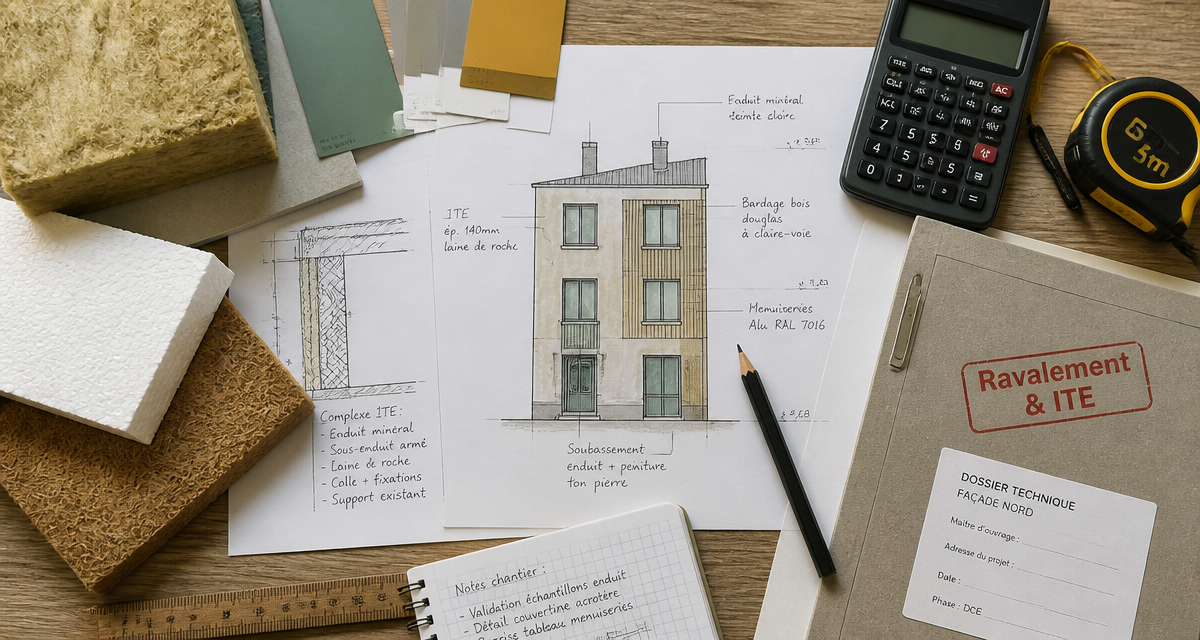 Enduit minéral
teinte claire
ITE
ép. 140mm
laine de roche
Bardage bois
douglas
à claire-voie
Menuiseries
Alu RAL 7016
Complexe ITE :
- Enduit minéral
- Sous-enduit armé
- Laine de roche
- Colle + fixations
- Support existant
Soubassement
enduit + peinture
ton pierre
Notes chantier :
- Validation échantillons enduit
- Détail couvertine acrotère
tableau menuiseries
AC
7
4
0
=
5m
Ravalement
& ITE
DOSSIER TECHNIQUE
FAÇADE NORD
Maître d'ouvrage :
Adresse du projet :
Date :
Phase : DCE